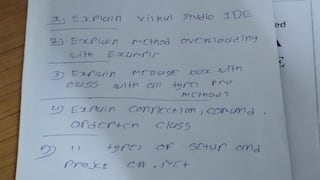 1) Explain Vishul Studio IDE
2) Explain method overloading
with Example
3) Explain message box with
class with all types and
methods
4) Explain connection, comand,
adapter class
5) 11 types of setup and
project C# .net
ed
A
E